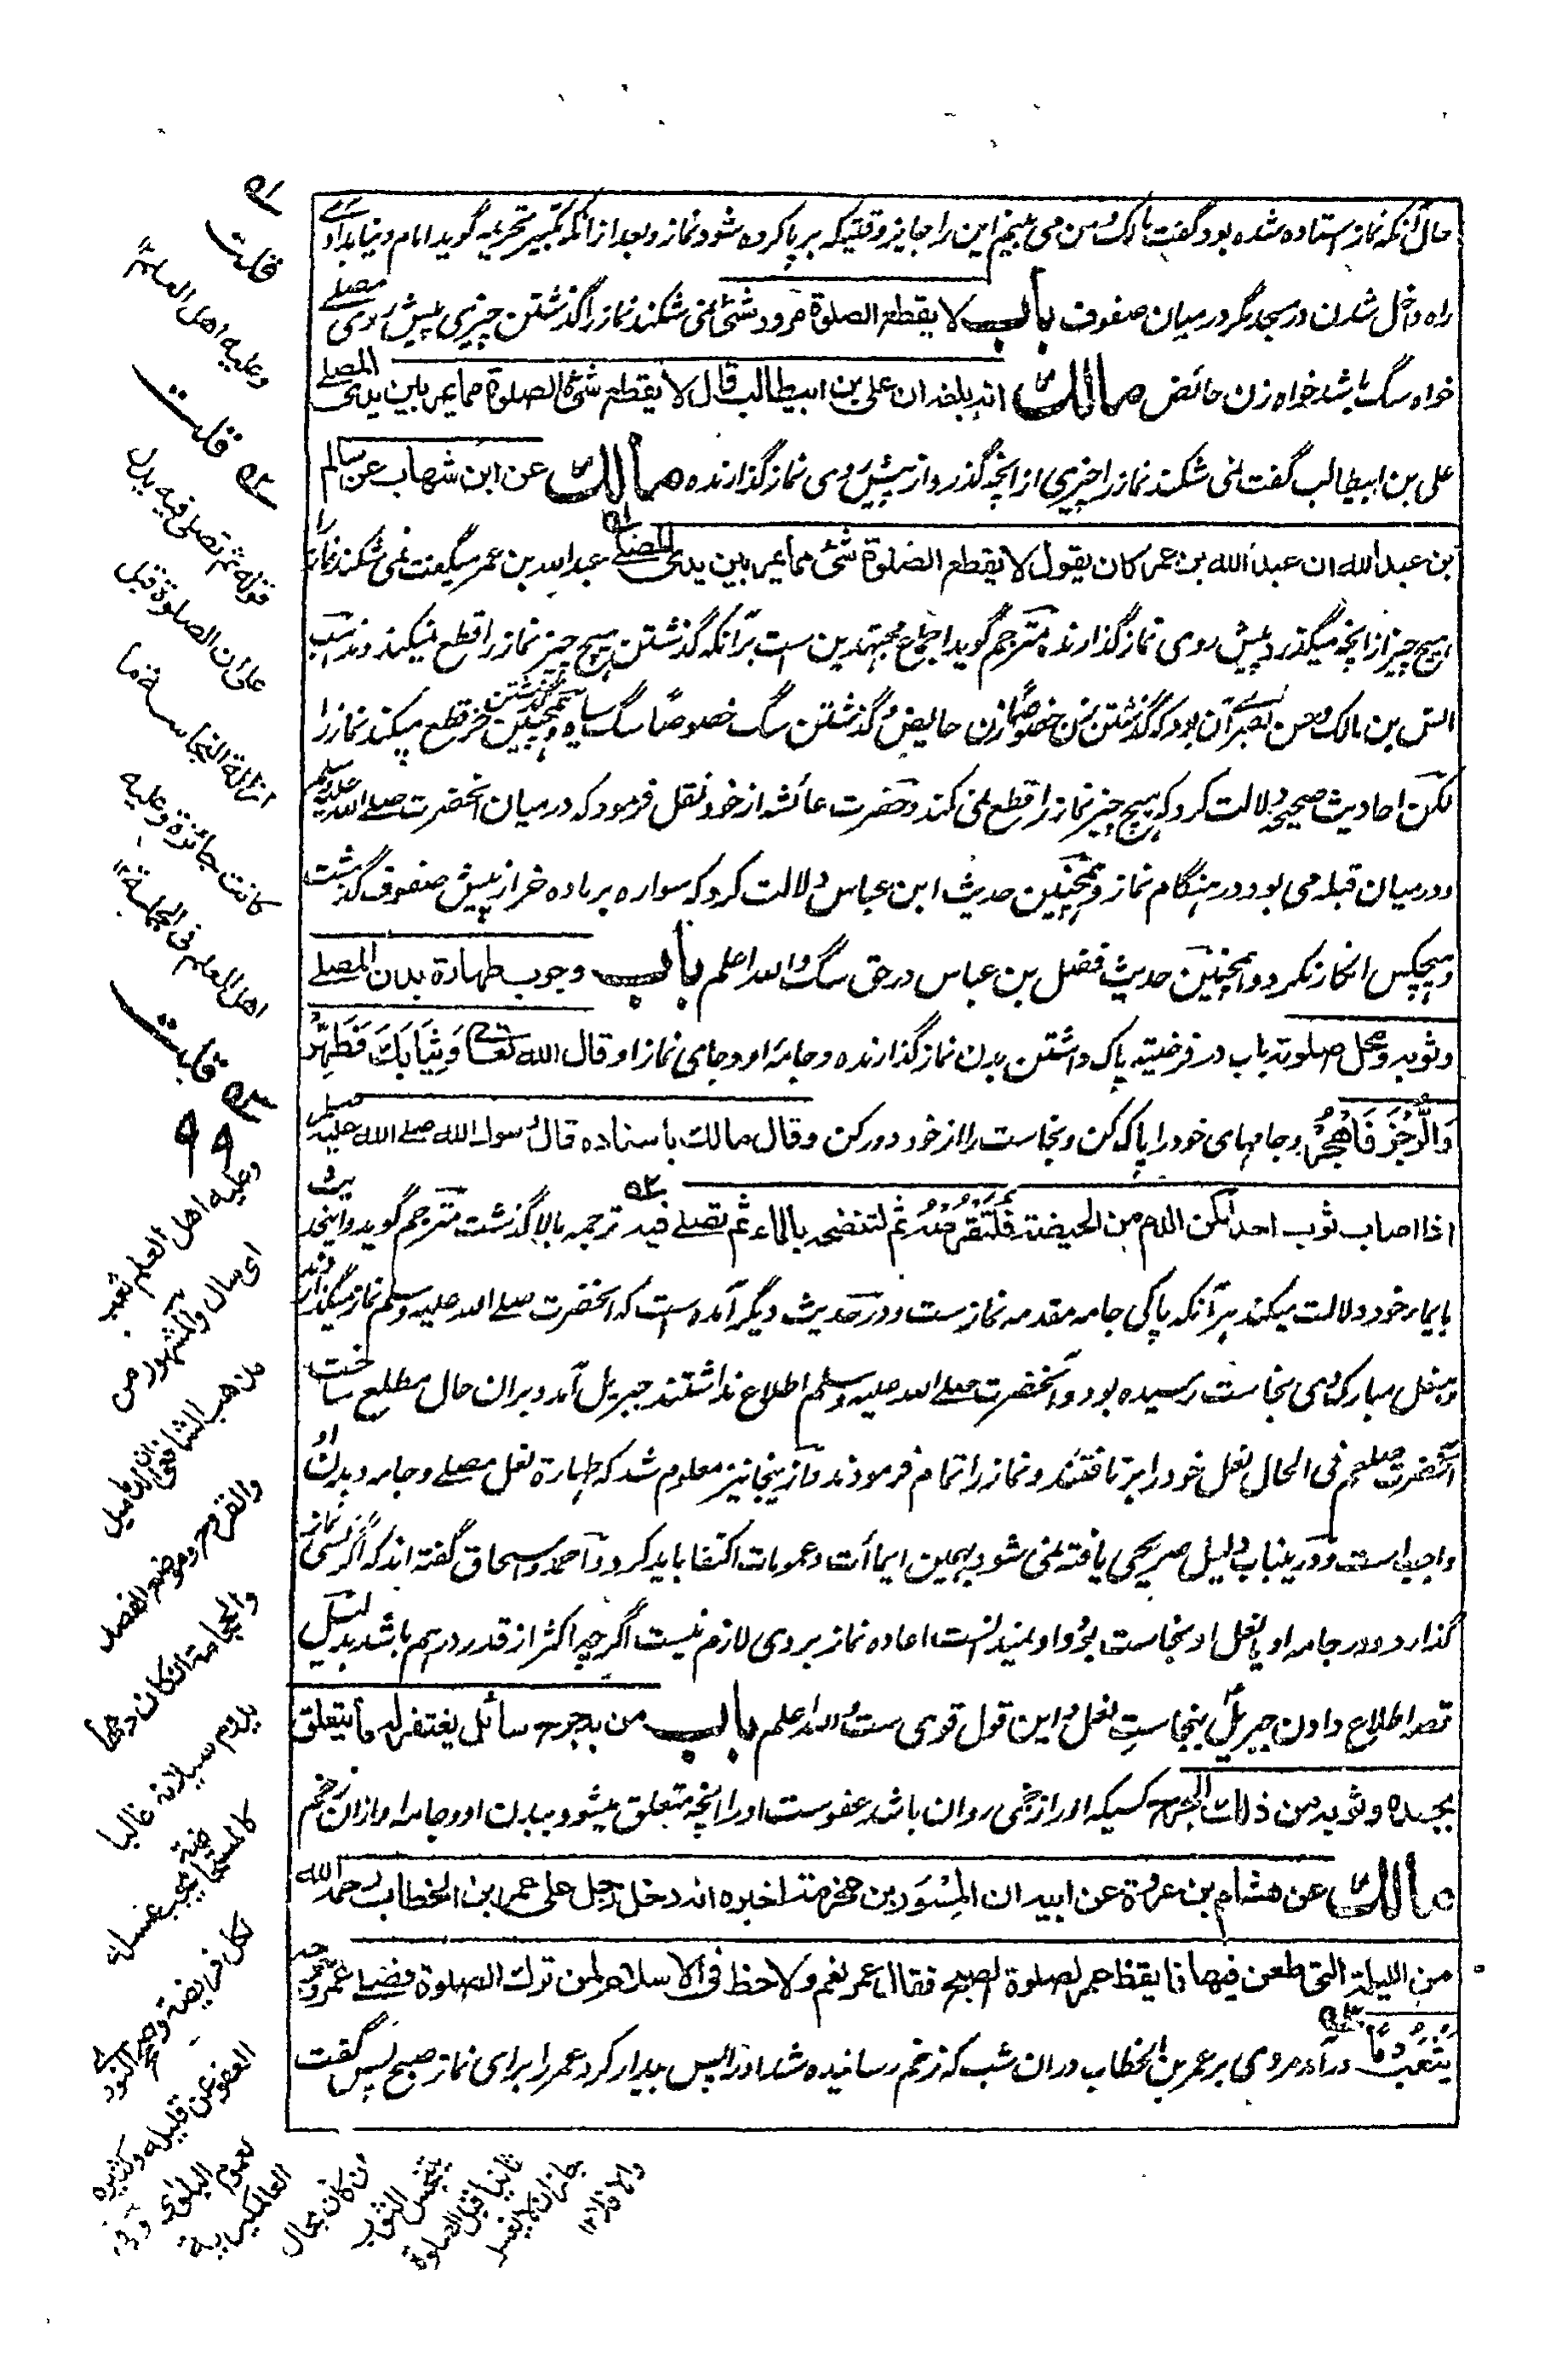 حال آنکه نماز استاده شده بود گفت مالک و من می بینم این را جایز وقتیکه بر پا کرده شود نماز و بعد از آنکه تکبیر تحریمه گوید امام و نیابد او
راه داخل شدن در مسجد مگر در میان صفوف باب لا يقطع الصلوة مرور شئ نمی شکند نماز را گذشتن چیزی پیش روی مصلے
خواه سگ باشد خواه زن حائض مالك انه بلغه ان علی بن ابیطالب قال لا يقطع شئ الصلوة مما يمر بين يدى المصلے
علی بن ابیطالب گفت نمی شکند نماز را چیزی از آنچه گذرد از پیش روی نماز گذارنده مالك عن ابن شهاب عن سالم
بن عبد الله ان عبد الله بن عمر كان يقول لا يقطع الصلوة شئ مما يمر بين يدى المصلے عبد الله بن عمر میگفت نمی شکند نماز را
هیچ چیز از آنچه میگذرد پیش روی نماز گذارنده مترجم گوید اجماع مجتهدین است بر آنکه گذشتن هیچ چیز نماز را قطع نمیکند و مذهب
انس بن مالک و حسن بصری آن بود که گذشتن زن خصوصاً زن حایض و گذشتن سگ خصوصاً سگ سیاه و همچنین گذشتن خر قطع میکند نماز را
لکن احادیث صحیحه دلالت کرد که هیچ چیز نماز را قطع نمی کند و حضرت عائشه از خود نقل فرمود که در میان آنحضرت صلے الله علیه وسلم
و در میان قبله می بود در هنگام نماز و همچنین حدیث ابن عباس دلالت کرد که سواره بر ماده خر از پیش صفوف گذشت
و هیچکس انکار نکرد و همچنین حدیث فضل بن عباس در حق سگ والله اعلم باب وجوب طهارة بدن المصلے
وثوبه ومحل صلوته باب در فرضیت پاک داشتن بدن نماز گذارنده و جامه او و جای نماز او قال الله تعالے وَثِيَابَكَ فَطَهِّرْ
وَالرُّجْزَ فَاهْجُرْ و جامهای خود را پاک کن و نجاست را از خود دور کن وقال مالك باسناده قال رسول الله صلے الله عليه وسلم
اذا اصاب ثوب احدٰكن الدم من الحيضة فلتقرصه ثم لتنضحه بالماء ثم تصلے فيه ترجمه بالا گذشت مترجم گوید و اینحدیث
بایماء خود دلالت میکند بر آنکه پاکی جامه مقدمه نمازست و در حدیث دیگر آمده است که آنحضرت صلے الله علیه وسلم نماز میگذاردند
و بنعل مبارک وی نجاست رسیده بود و آنحضرت صلے الله علیه وسلم اطلاع نداشتند جبریل آمد و بران حال مطلع ساخت
آنحضرت صلعم فی الحال نعل خود را بر تافتند و نماز را اتمام فرمودند و از ینجا نیز معلوم شد که طهارة نعل مصلے و جامه و بدن او
واجب است و درینباب دلیل صریحی یافته نمی شود بهمین ایماآت و عمومات اکتفا باید کرد و احمد و اسحاق گفته اند که اگر کسی نماز
گذارد و در جامه او یا نعل او نجاست بود و او نمیدانست اعاده نماز بر وی لازم نیست اگرچه اکثر از قدر درهم باشد بدلیل
قصه اطلاع دادن جبریل بنجاست نعل و این قول قوی ست والله اعلم باب من به جرح سائل يغتفر له ما يتعلق
بجسده وثوبه من ذلك الجرح کسیکه او را زخمی روان باشد عفوست او را آنچه متعلق میشود ببدن او و جامه او از ان زخم
مالك عن هشام بن عروة عن ابيه ان المسور بن مخرمة اخبره انه دخل رجل على عمر بن الخطاب رحمه الله
من الليلة التى طعن فيها فايقظ عمر لصلوة الصبح فقال عمر نعم ولا حظ فى الاسلام لمن ترك الصلوة فصلے عمر وجرحه
يثعب دماً در آمد مردی بر عمر بن الخطاب دران شب که زخم رسانیده شد او را پس بیدار کرد عمر را برای نماز صبح پس گفت
قلت
وعليه اهل العلم
قلت
قوله ثم تصلى فيه يدل
على ان الصلوة قبل
ازالة النجاسة ما
كانت جائزة وعليه
اهل العلم فى الجملة
قلت
وعليه اهل العلم يثعب
اى سال والمشهور من
مذهب الشافعى
والقروح وموضع الفصد
والحجامة ان كان دمها
يدوم سيلانه غالبا
لكل فريضة
العفو عن قليله وكثيره
لعموم البلوى وفى
العالمكيرية
ان كان بحال
يتنجس الثوب
ثانيا قبل الصلوة
جاز ان لا يغسل
والا فلا ١٢